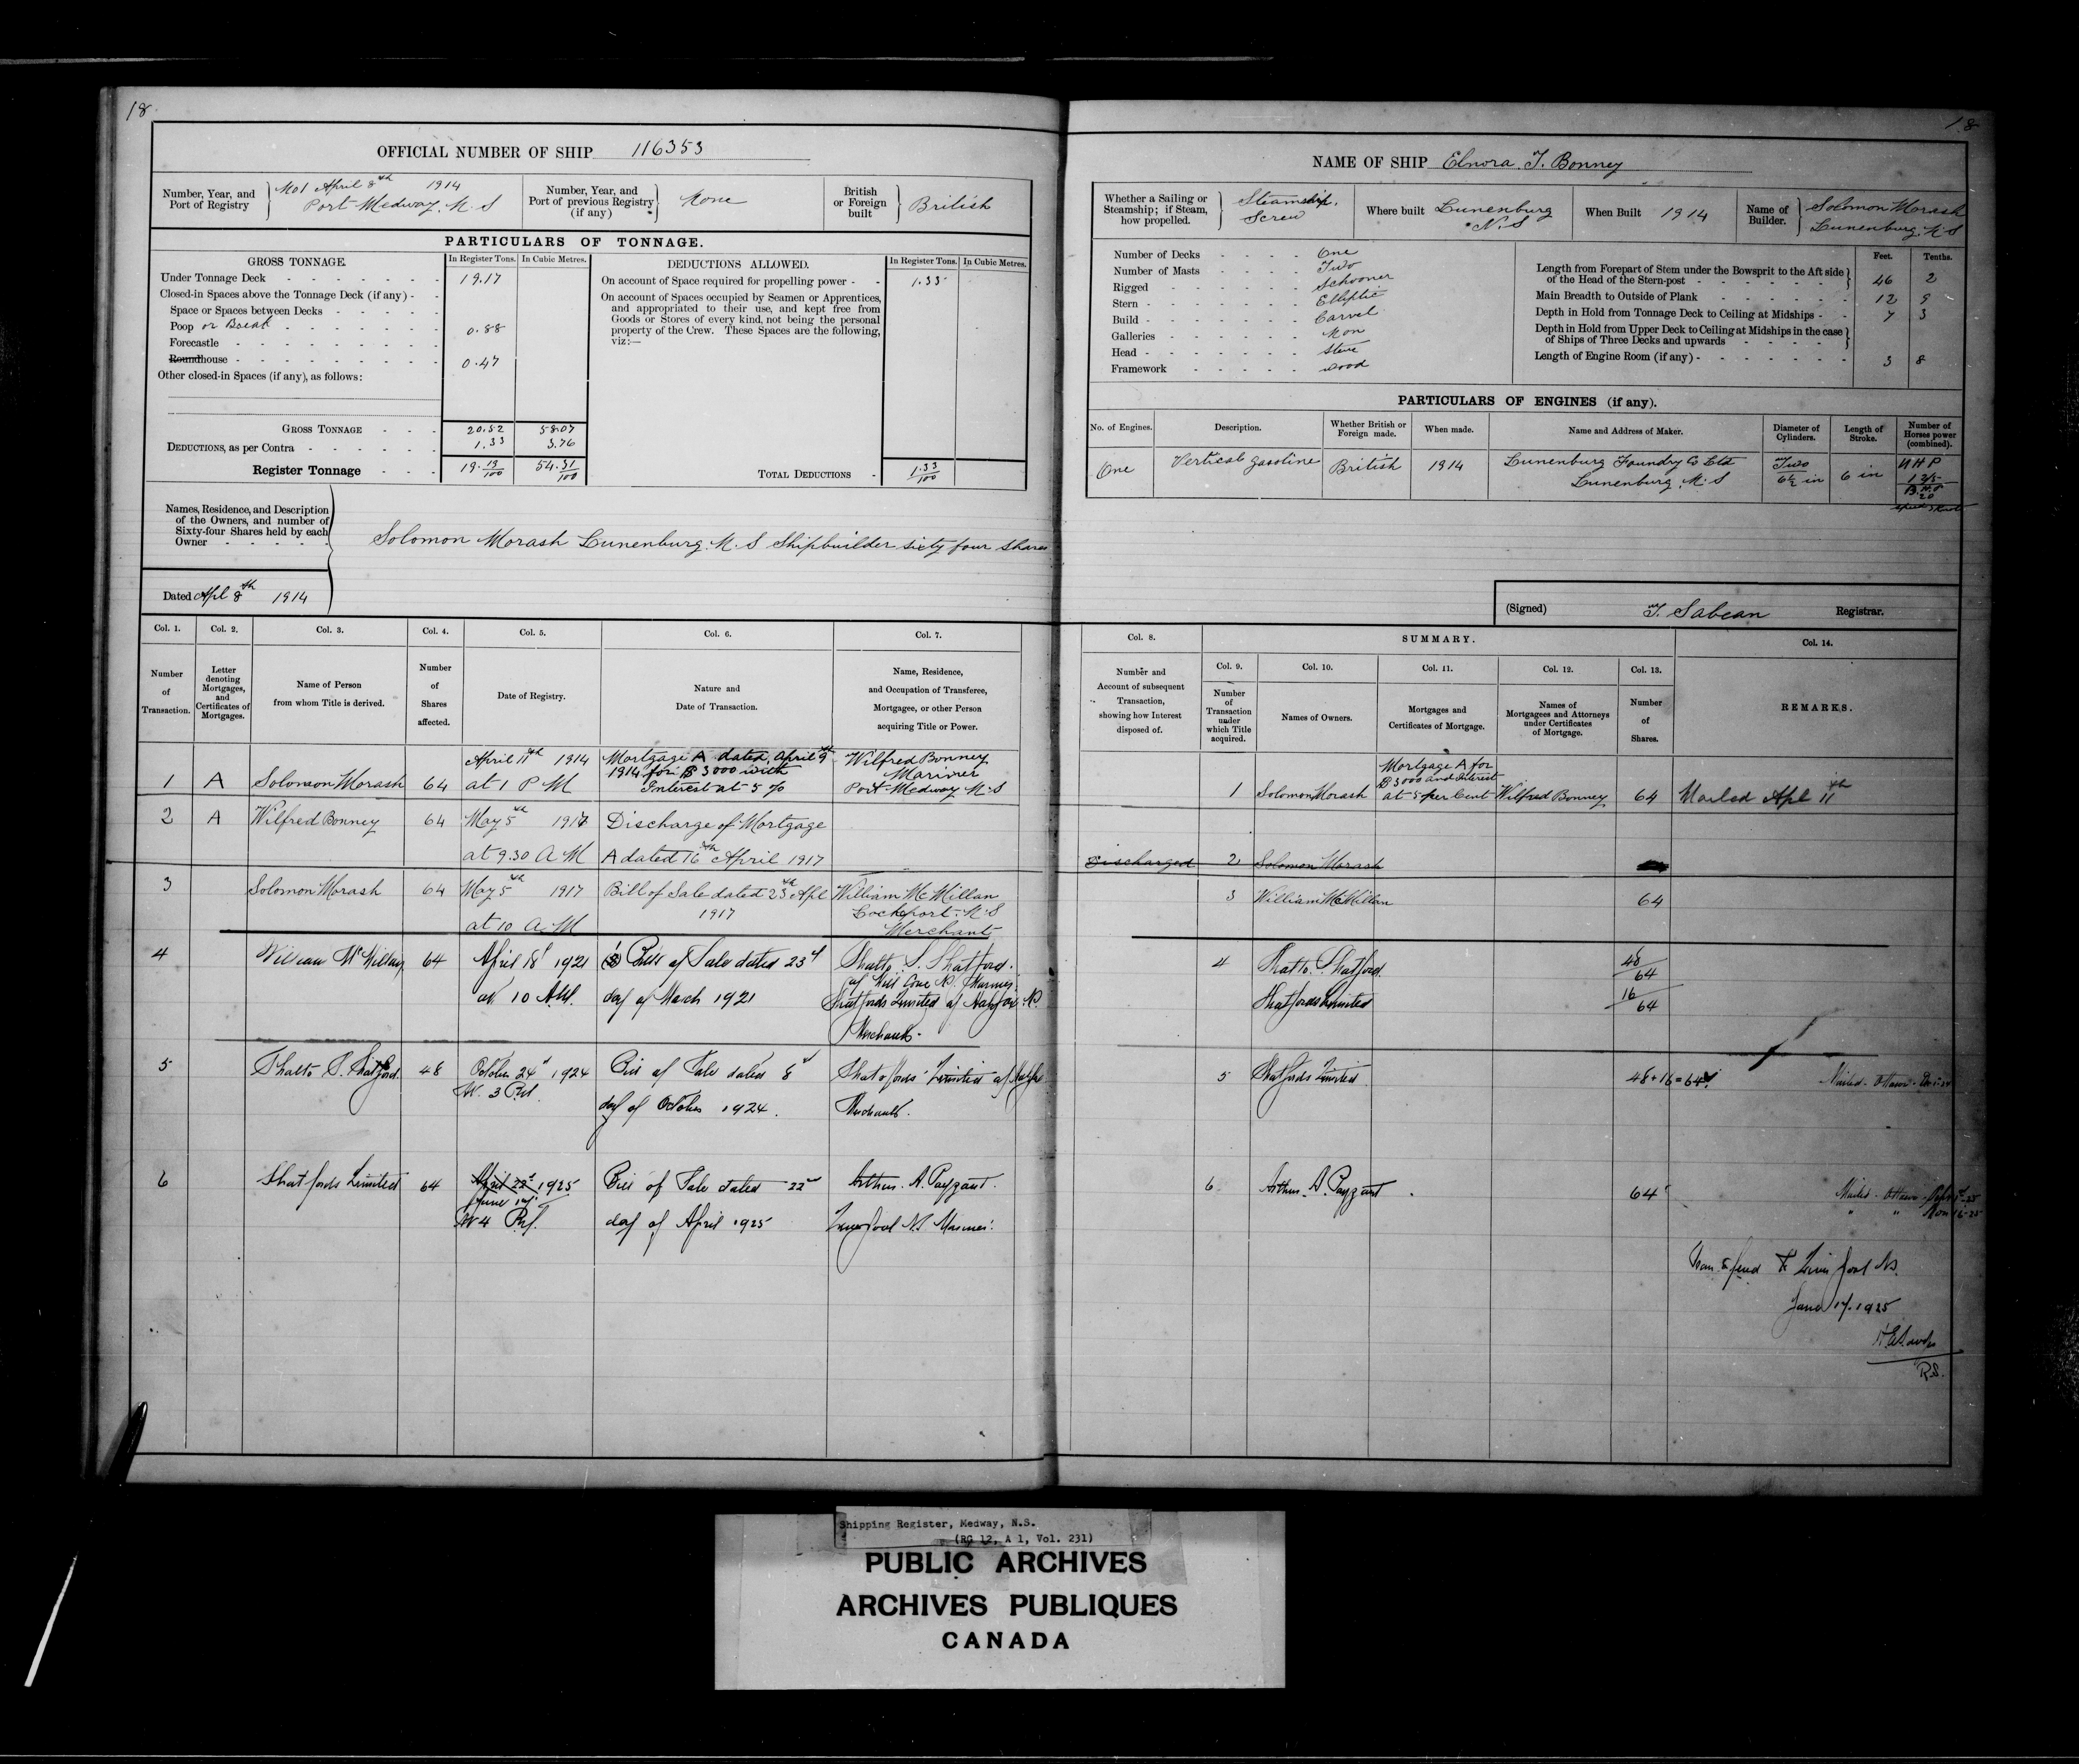 18
OFFICIAL NUMBER OF SHIP 116353
Number, Year, and Port of Registry
No 1 April 8th 1914
Port Medway. N. S
Number, Year, and Port of previous Registry (if any)
None
British or Foreign built
British
PARTICULARS OF TONNAGE.
GROSS TONNAGE. In Register Tons. In Cubic Metres.
Under Tonnage Deck 19.17
Closed-in Spaces above the Tonnage Deck (if any)
Space or Spaces between Decks
Poop or Break 0.88
Forecastle
Roundhouse 0.47
Other closed-in Spaces (if any), as follows:
GROSS TONNAGE 20.52 58.07
DEDUCTIONS, as per Contra 1.33 3.76
Register Tonnage 19.19/100 54.31/100
DEDUCTIONS ALLOWED. In Register Tons. In Cubic Metres.
On account of Space required for propelling power 1.33
On account of Spaces occupied by Seamen or Apprentices,
and appropriated to their use, and kept free from
Goods or Stores of every kind, not being the personal
property of the Crew. These Spaces are the following,
viz:—
TOTAL DEDUCTIONS 1.33/100
Names, Residence, and Description
of the Owners, and number of
Sixty-four Shares held by each
Owner
Solomon Morash Lunenburg. N. S Shipbuilder sixty four shares
Dated Apl 8th 1914
Col. 1. Col. 2. Col. 3. Col. 4. Col. 5. Col. 6. Col. 7.
Number of Transaction.
Letter denoting Mortgages, and Certificates of Mortgages.
Name of Person from whom Title is derived.
Number of Shares affected.
Date of Registry.
Nature and Date of Transaction.
Name, Residence, and Occupation of Transferee, Mortgagee, or other Person acquiring Title or Power.
April 11th 1914 Mortgage A dated, April 9th Wilfred Bonney
1914 for $3000 with Mariner
1 A Solomon Morash 64 at 1 P M Interest at 5 % Port Medway N. S
2 A Wilfred Bonney 64 May 5th 1917 Discharge of Mortgage
at 9.30 A M A dated 16th April 1917
3 Solomon Morash 64 May 5th 1917 Bill of Sale dated 23rd Apl William McMillan
1917 Lockeport. N. S
at 10 A M Merchant
4 William McMillan 64 April 18 1921 Bill of Sale dated 23d Shatto. S. Shatford.
at 10 A.M. day of March 1921
Shatfords Limited of
Merchants.
5 Shatto S. Shatford. 48 October 24 1924 Bill of Sale dated 8th Shatfords Limited of
At 3 P.M. day of October 1924. Merchants.
6 Shatfords Limited 64 April 22d 1925 Bill of Sale dated 22d Arthur. A. Payzant.
June 17
At 4 P.M. day of April 1925 Liverpool N.S. Mariner.
18
NAME OF SHIP Elnora. T. Bonney
Whether a Sailing or Steamship; if Steam, how propelled.
Steamship.
Screw
Where built Lunenburg
N. S
When Built 1914
Name of Builder.
Solomon Morash
Lunenburg. N. S
Number of Decks One
Number of Masts Two
Rigged Schooner
Stern Elliptic
Build Carvel
Galleries Non
Head
Framework Wood
Feet. Tenths.
Length from Forepart of Stem under the Bowsprit to the Aft side
of the Head of the Stern-post 46 2
Main Breadth to Outside of Plank 12 9
Depth in Hold from Tonnage Deck to Ceiling at Midships 7 3
Depth in Hold from Upper Deck to Ceiling at Midships in the case
of Ships of Three Decks and upwards
Length of Engine Room (if any) 3 8
PARTICULARS OF ENGINES (if any).
No. of Engines. Description. Whether British or Foreign made. When made. Name and Address of Maker. Diameter of Cylinders. Length of Stroke. Number of Horses power (combined).
One Vertical gasoline British 1914 Lunenburg Foundry Co Ltd Two 6 in N H P
Lunenburg. N. S 6½ in
B.H.P
20
(Signed) T. Sabean Registrar.
Col. 8. SUMMARY. Col. 14.
Col. 9. Col. 10. Col. 11. Col. 12. Col. 13.
Number and Account of subsequent Transaction, showing how Interest disposed of.
Number of Transaction under which Title acquired.
Names of Owners.
Mortgages and Certificates of Mortgage.
Names of Mortgagees and Attorneys under Certificates of Mortgage.
Number of Shares.
REMARKS.
Mortgage A for
$3000 and Interest
1 Solomon Morash at 5 per Cent Wilfred Bonney 64 Mailed Apl 11th
Discharged 2 Solomon Morash
3 William McMillan 64
4 Shatto. Shatford. 48/64
Shatfords Limited 16/64
5 Shatfords Limited 48+16=64 Mailed - Ottawa -
6 Arthur. A. Payzant 64 Mailed - Ottawa -
Transferred to Liverpool N.S.
June 17. 1925
R.S.
Shipping Register, Medway, N.S.
(RG 12, A 1, Vol. 231)
PUBLIC ARCHIVES
ARCHIVES PUBLIQUES
CANADA